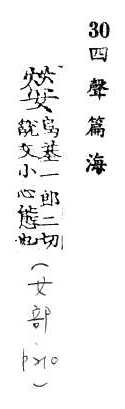 30 四聲篇海
嫈 烏莖一郎二切
說文小心態也
(女部
p210)